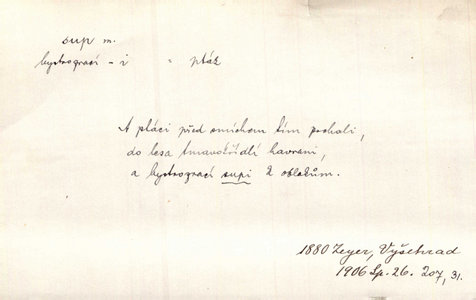 sup m.
bystrozrací - i " pták
A ptáci před smíchem tím prchali,
do lesa tmavokřídlí havrani,
a bystrozrací supi k oblakům.
1880 Zeyer, Vyšehrad
1906 Sp. 26. 207, 31.